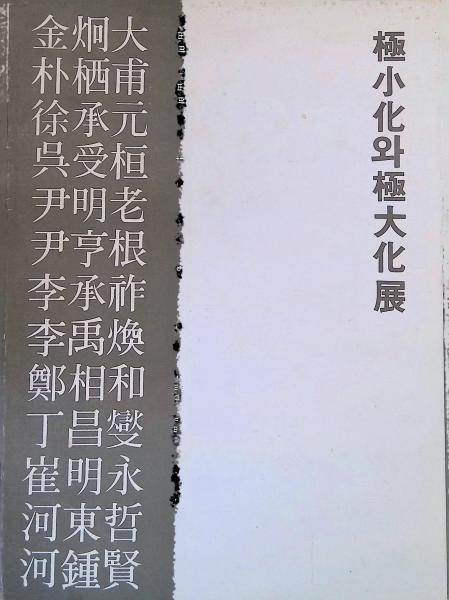 極小化와極大化展
金炯大
朴栖甫
徐承元
吳受桓
尹明老
尹亨根
李承祚
李禹煥
鄭相和
丁昌燮
崔明永
河東哲
河鍾賢